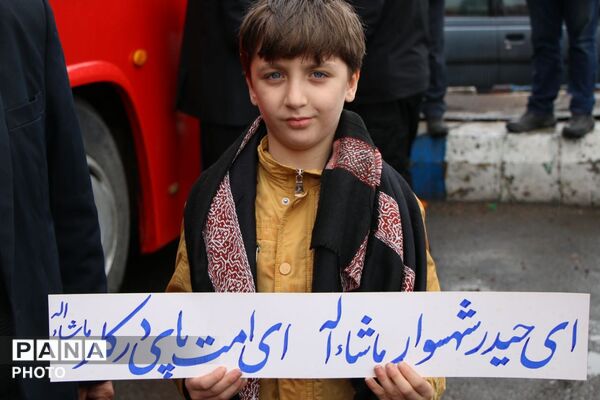 ای حیدر شهسوار ماشاءاله ای امت پای در کار ماشاءاله
PANA
PHOTO